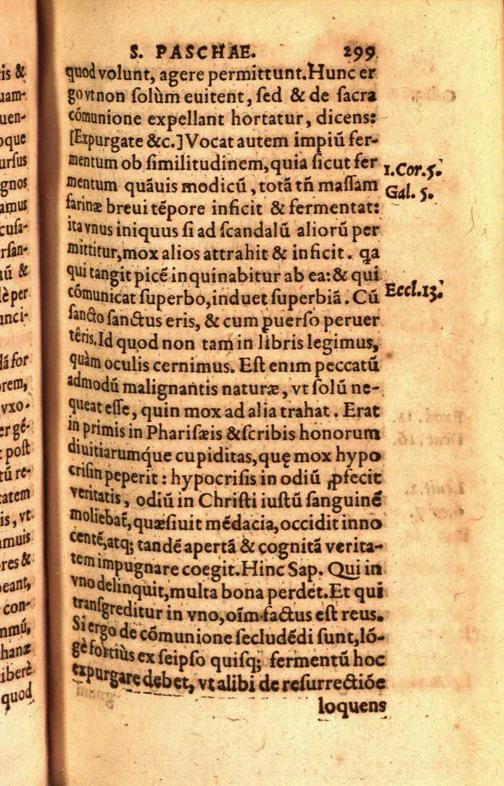 S. PASCHAE. 299
quod volunt, agere permittunt. Hunc er
go vt non solùm euitent, sed & de sacra
cómunione expellant hortatur, dicens:
[Expurgate &c.] Vocat autem impiú fer-
mentum ob similitudinem, quia sicut fer
mentum quãuis modicũ, totã tñ massam
farinæ breui tẽpore inficit & fermentat:
ita vnus iniquus si ad scandalũ aliorũ per
mittitur, mox alios attrahit & inficit. qa
qui tangit picẽ inquinabitur ab ea: & qui
cómunicat superbo, induet superbiã. Cũ
sancto sanctus eris, & cum puerso peruer
têris. Id quod non tam in libris legimus,
quàm oculis cernimus. Est enim peccatũ
admodũ malignantis naturæ, vt solũ ne-
queat esse, quin mox ad alia trahat. Erat
in primis in Pharisæis & scribis honorum
diuitiarumque cupiditas, quę mox hypo
crisin peperit: hypocrisis in odiũ ꝓfecit
veritatis, odiũ in Christi iustũ sanguinẽ
moliebat̃, quæsiuit mẽdacia, occidit inno
centẽ, atq; tandẽ apertã & cognitã verita-
tem impugnare coegit. Hinc Sap. Qui in
vno delinquit, multa bona perdet. Et qui
transgreditur in vno, oĩm factus est reus.
Si ergo de cómunione secludẽdi sunt, lõ-
gè fortius ex seipso quisq; fermentũ hoc
expurgare debet, vt alibi de resurrectiõe
loquens
1. Cor. 5.
Gal. 5.
Eccl. 13.
is &
uam-
uen-
oque
ursus
gnos
amus
cusa-
rsan-
iũ &
lè per
inci-
lã for
orem,
vxo-
er gê-
post
tũ re-
catem
is, vt
amuis
res &
beant,
con-
mmũ,
hanæ
liberè
quod